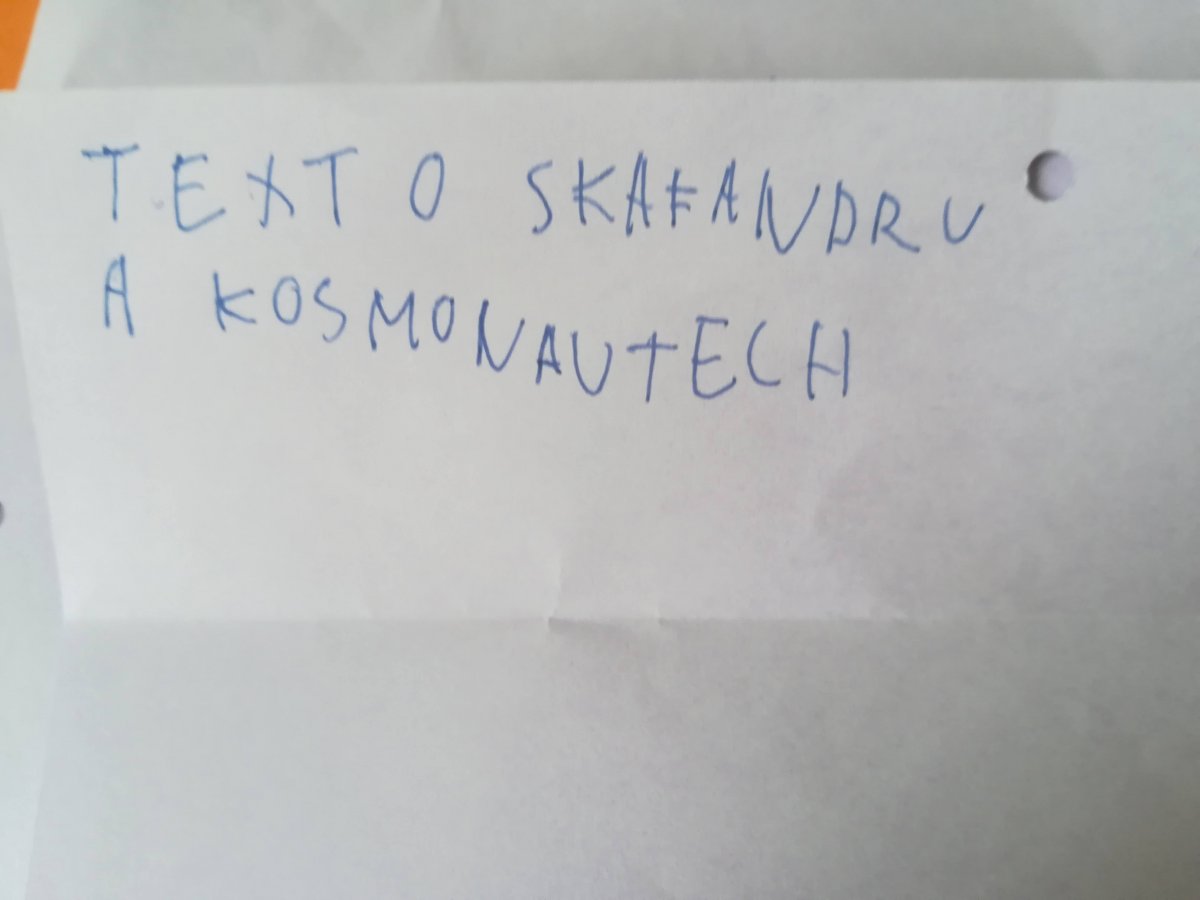 TEXT O SKAFANDRU
A KOSMONAUTECH